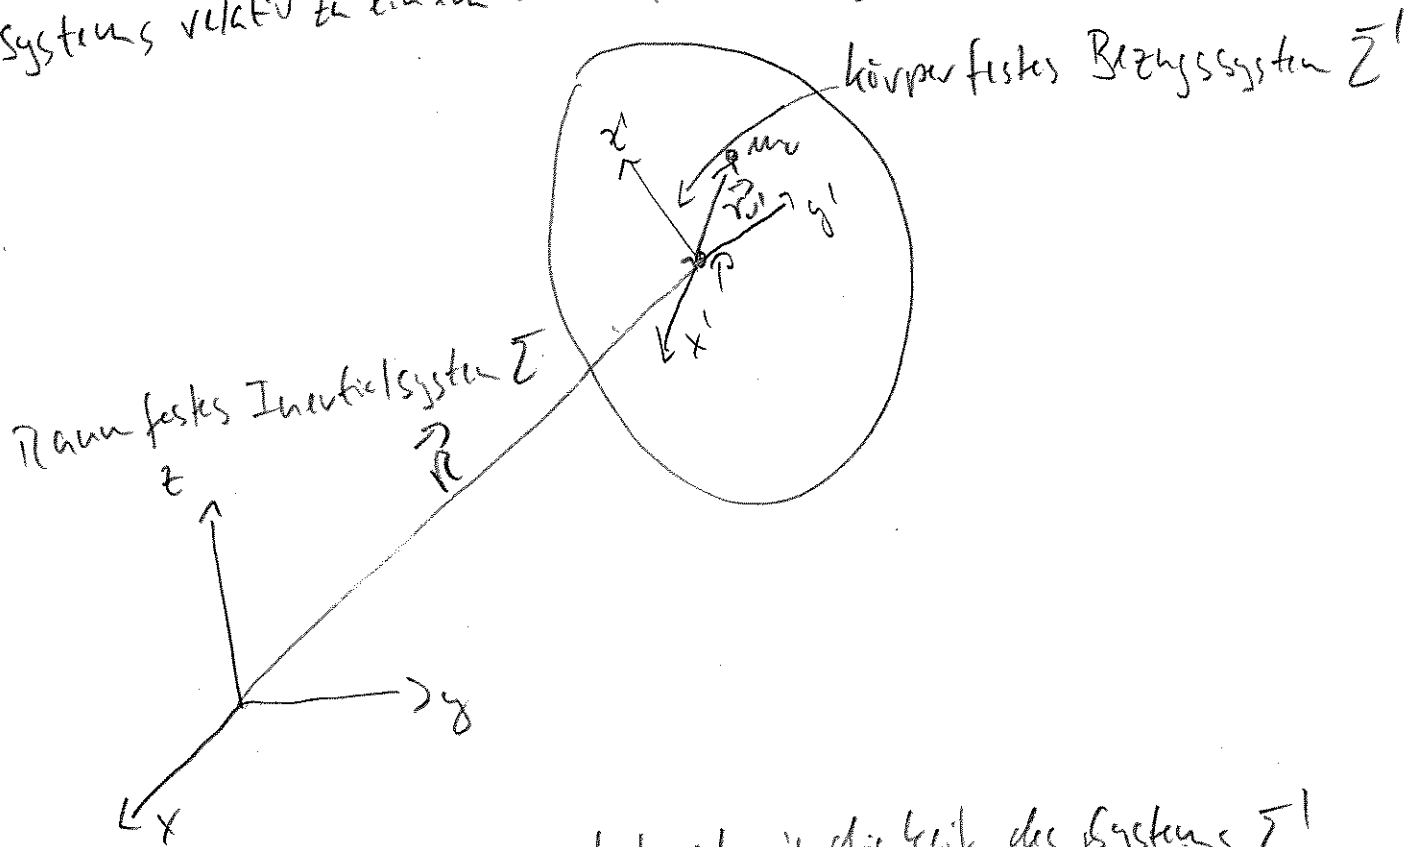 Systems relativ zu einem
körperfestes Bezugssystem Σ'
z'
mν
r⃗ν'
y'
P
x'
Raumfestes Inertialsystem Σ
R⃗
z
y
x
des Systems Σ'